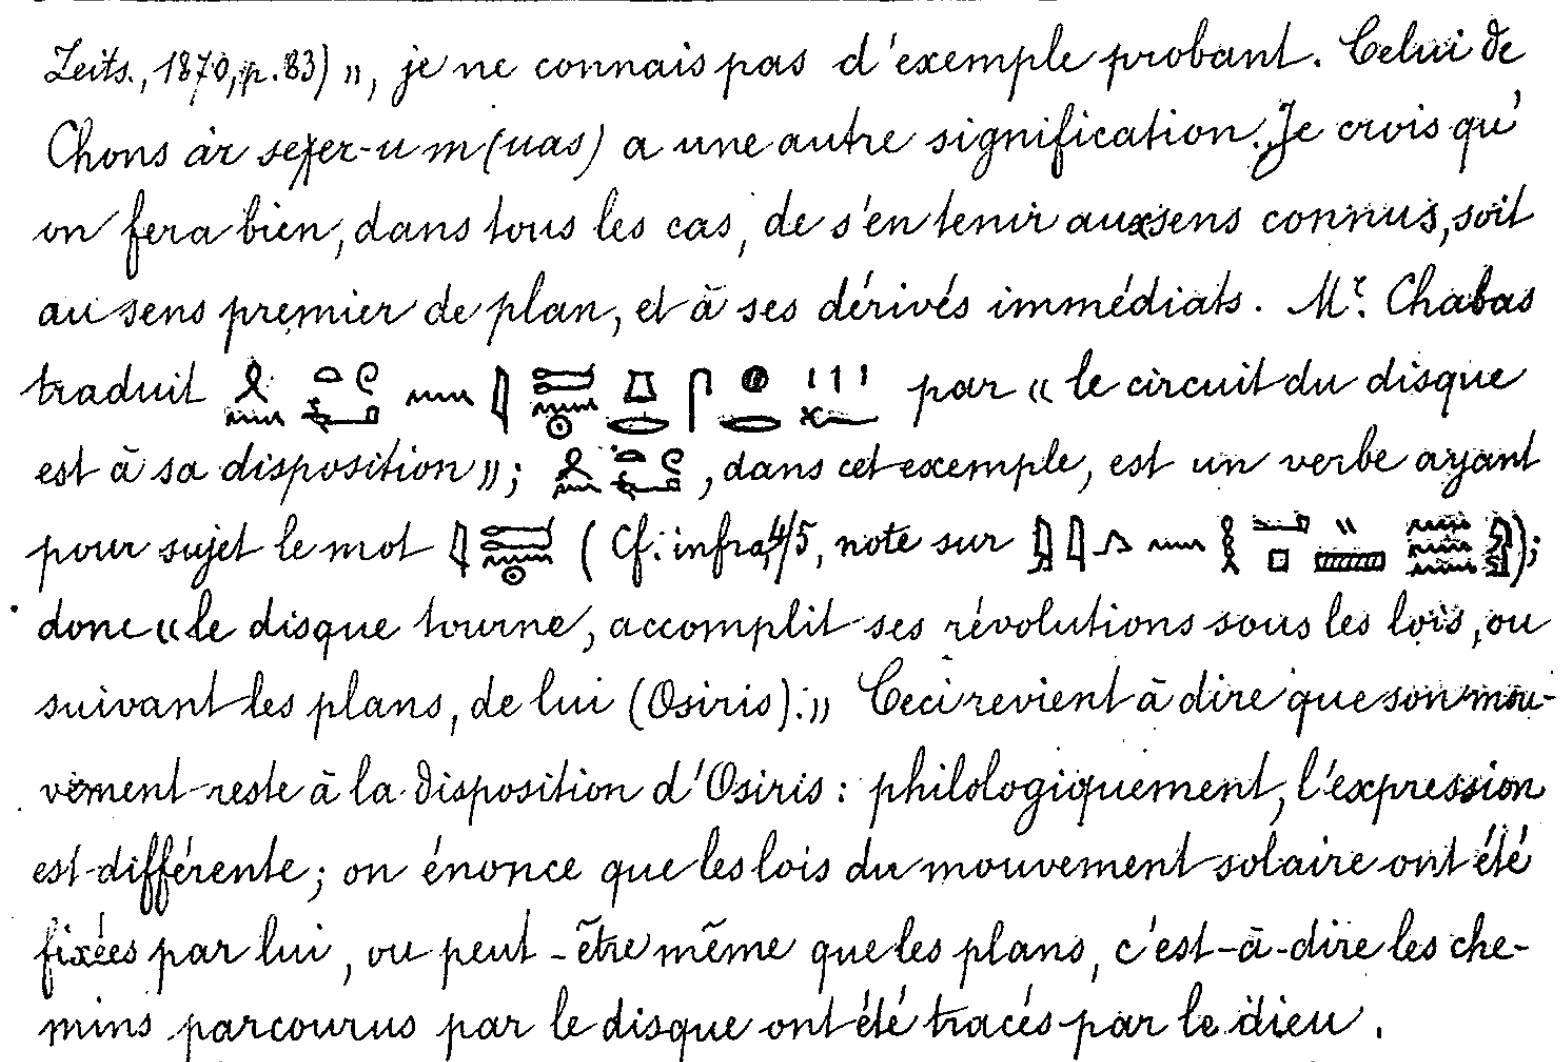 Zeits., 1870, p. 83) », je ne connais pas d'exemple probant. Celui de
Chons àr seχer-u m (uas) a une autre signification. Je crois qu'
on fera bien, dans tous les cas, de s'en tenir aux sens connus, soit
au sens premier de plan, et à ses dérivés immédiats. Mr. Chabas
traduit par « le circuit du disque
est à sa disposition »; , dans cet exemple, est un verbe ayant
pour sujet le mot ( Cf. infra, 4/5, note sur );
donc « le disque tourne, accomplit ses révolutions sous les lois, ou
suivant les plans, de lui (Osiris). » Ceci revient à dire que son mou-
vement reste à la disposition d'Osiris : philologiquement, l'expression
est différente; on énonce que les lois du mouvement solaire ont été
fixées par lui, ou peut-être même que les plans, c'est-à-dire les che-
mins parcourus par le disque ont été tracés par le dieu.